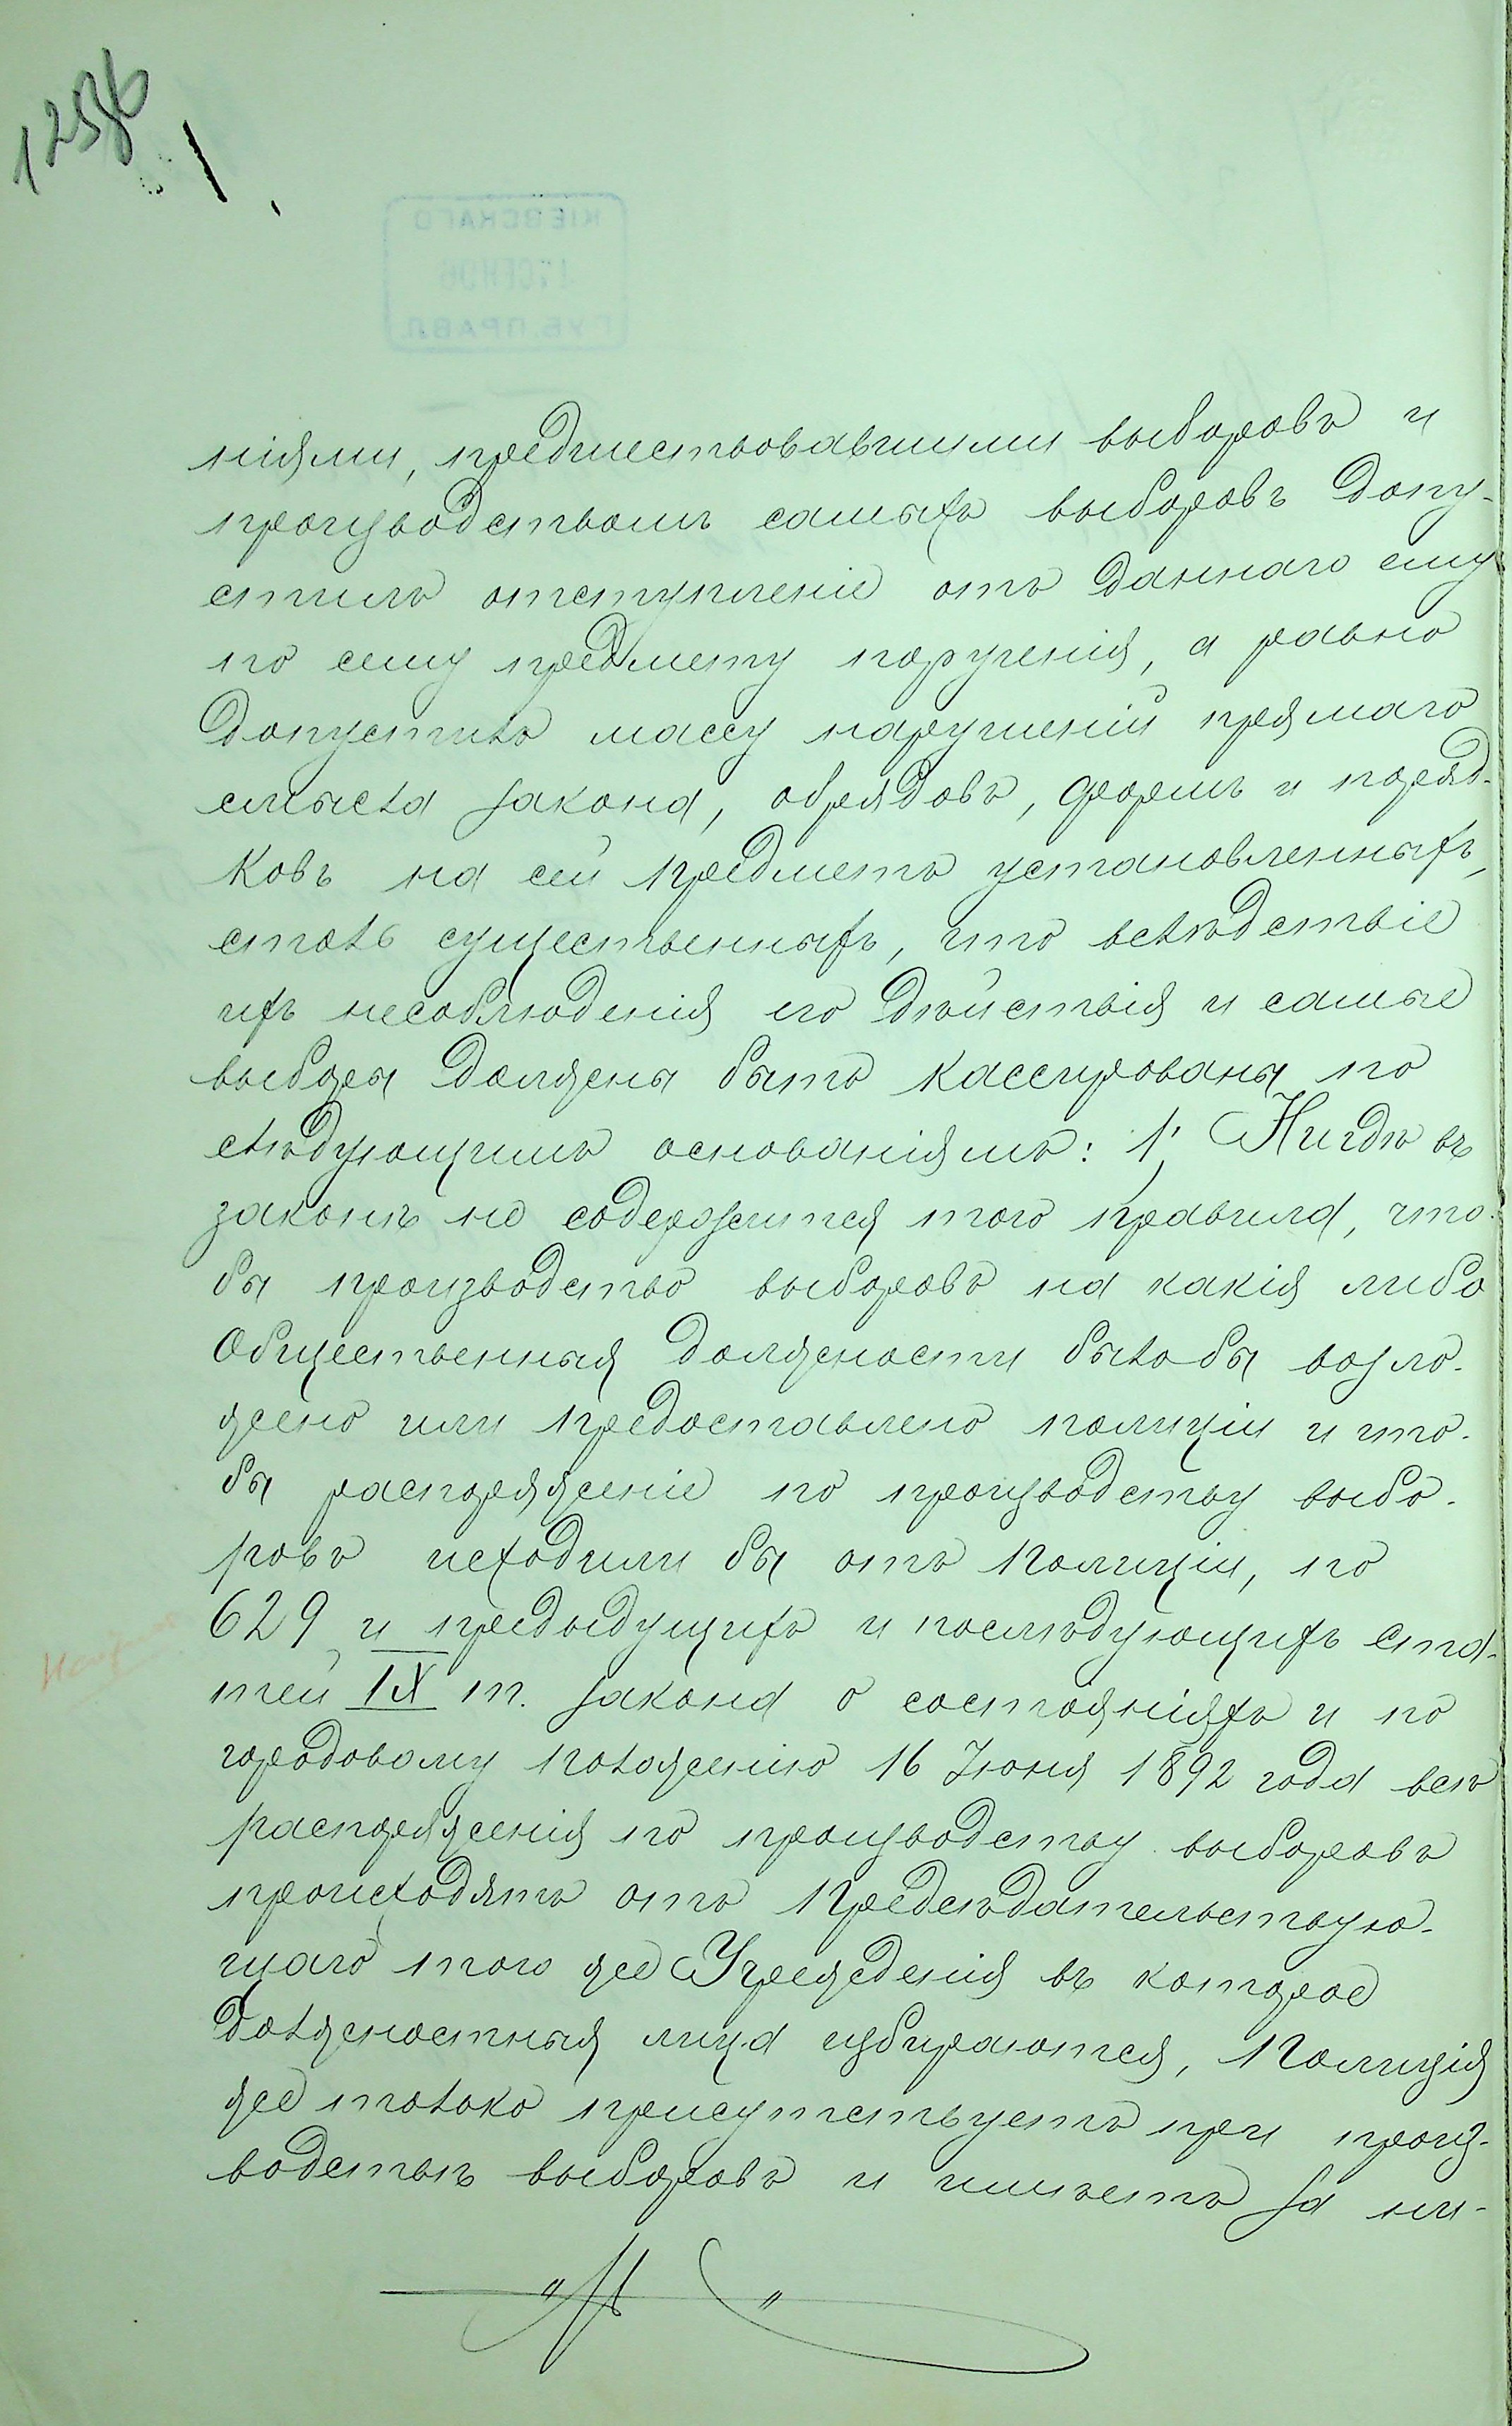 1256
1.
ніями, предшествовавшими выборовъ и
производствомъ самыхъ выборовъ допу-
стилъ отступленіе отъ даннаго ему
по сему предмету порученія, а равно
допустилъ массу нарушеній прямаго
смысла закона, обрядовъ, формъ и поряд-
ковъ на сей предметъ установленныхъ,
столь существенныхъ, что вслѣдствіе
ихъ несоблюденія его дѣйствія и самые
выборы должны быть кассированы по
слѣдующимъ основаніямъ: 1, Нигдѣ въ
законѣ не содержится того правила, что-
бы производство выборовъ на какія либо
Общественныя должности было бы возло-
жено или предоставлено полиціи и что-
бы распоряженіе по производству выбо-
ровъ исходили бы отъ полиціи, по
629 и предыдущихъ и послѣдующихъ ста-
тей IX т. закона о состояніяхъ и по
городовому положенію 16 Іюня 1892 года всѣ
распоряженія по производству выборовъ
происходятъ отъ предсѣдательствую-
щаго того же Учрежденія въ которое
должностныя лица избираются, Полиція
же только присутствуетъ при произ-
водствѣ выборовъ и имѣетъ за ни-
КІЕВСКАГО
ГУБ. ПРАВЛ.